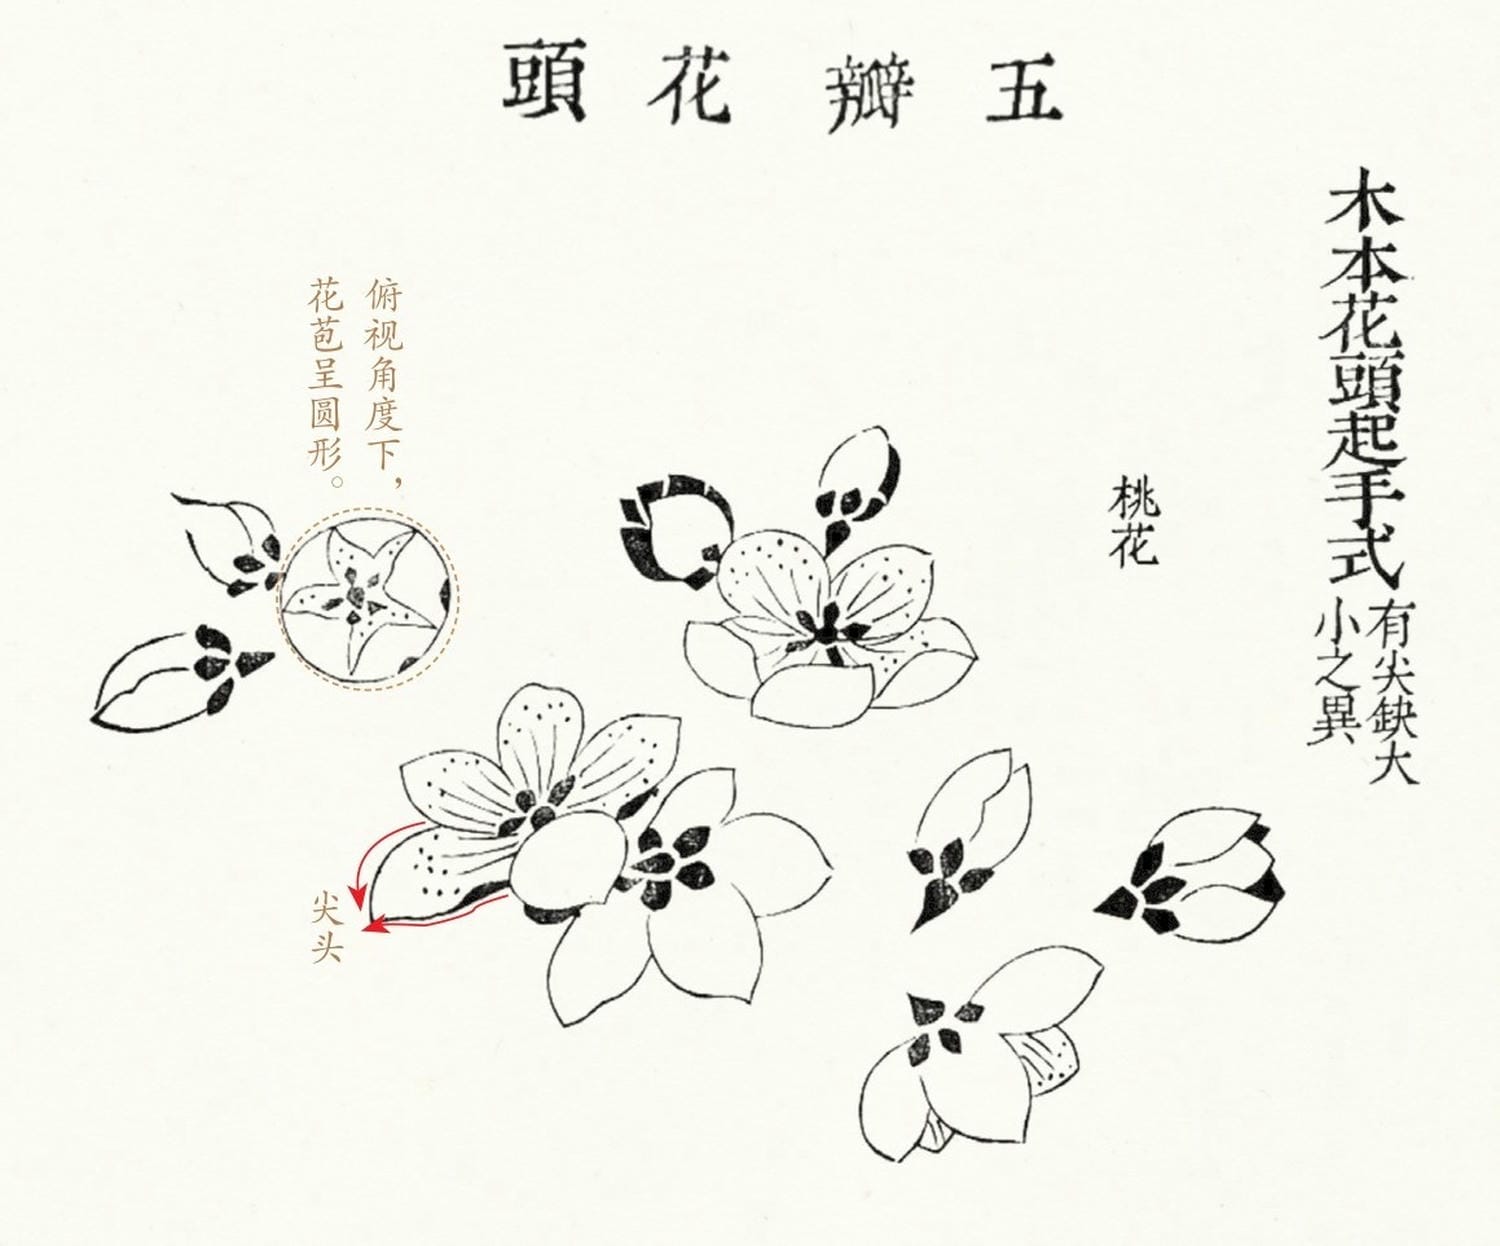 五瓣花頭
木本花頭起手式
有尖缺大
小之異
桃花
俯视角度下，
花苞呈圆形。
尖头